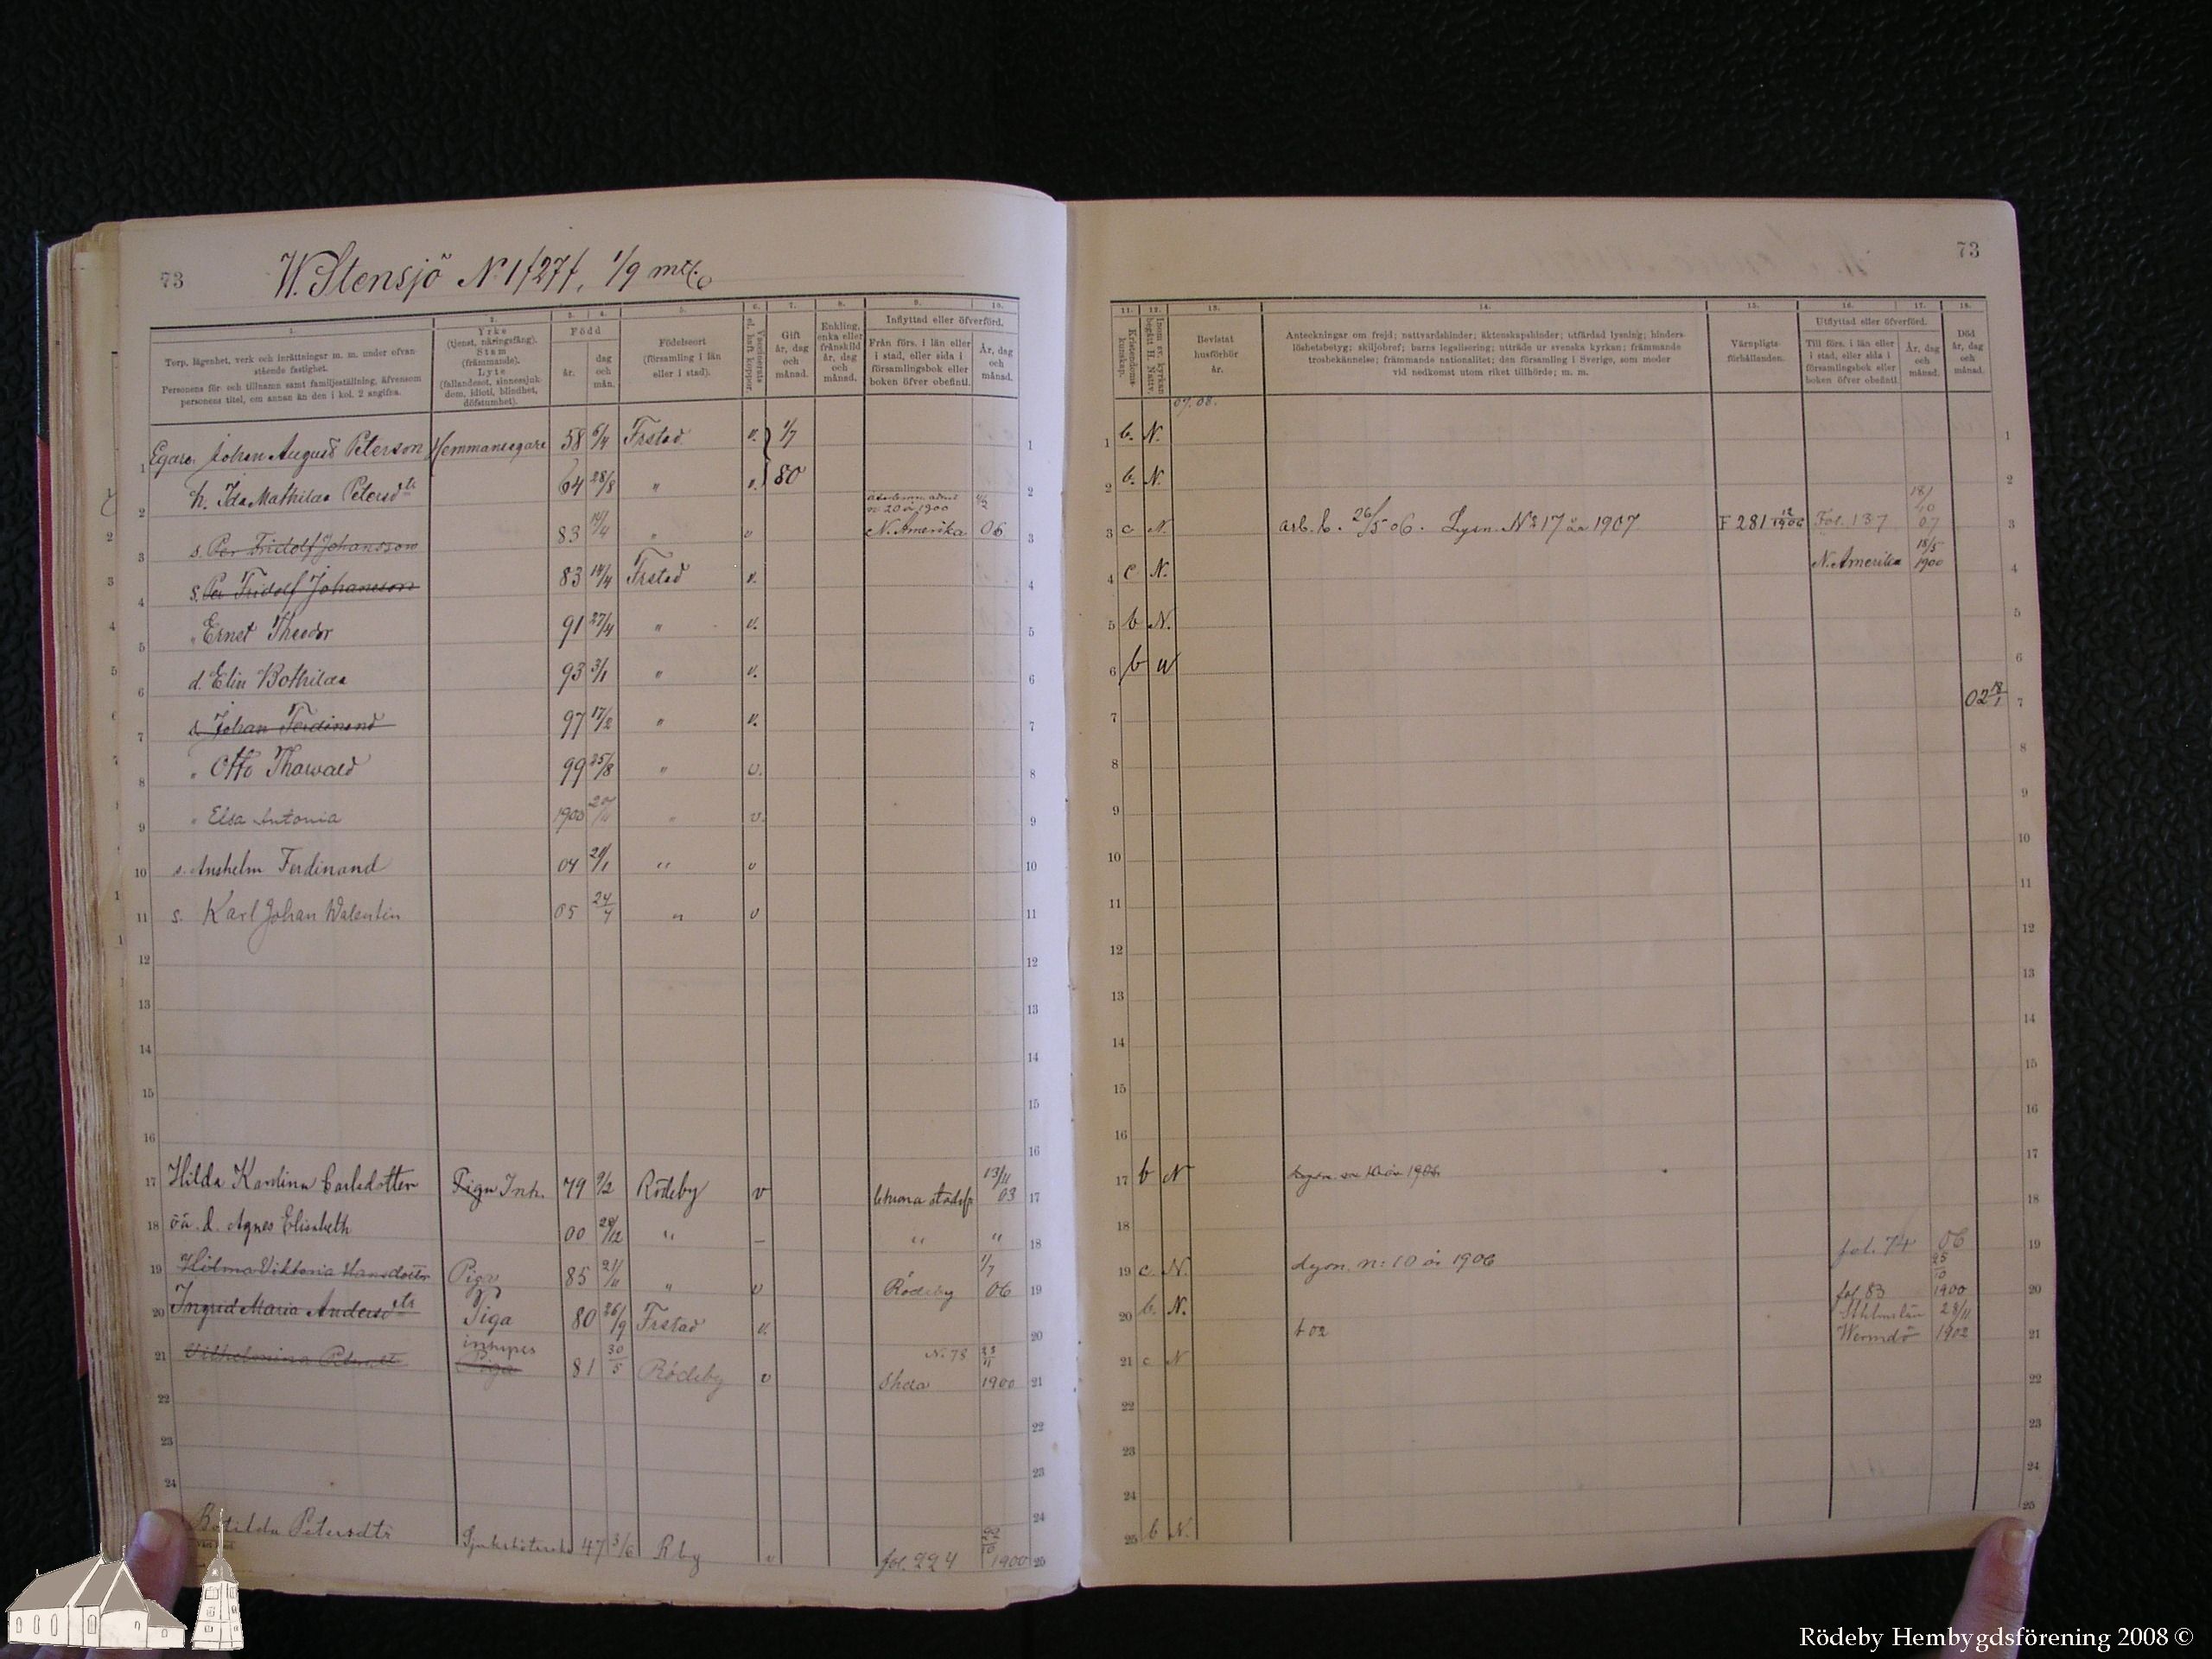 73
W. Stensjö N 1/27/, 1/9 mtl.
1. Torp, lägenhet, verk och inrättningar m. m. under ofvan stående fastighet.
Personens för- och tillnamn samt familjeställning, äfvensom personens titel, om annan än den i kol. 2 angifna.
2. Yrke (tjenst, näringsfång). Stam (främmande). Lyte (fallandesot, sinnessjukdom, idioti, blindhet, döfstumhet).
Född
3. år.
4. dag och mån.
5. Födelseort (församling i län eller i stad).
6. Vaccinerats el. haft koppor.
7. Gift år, dag och månad.
8. Enkling, enka eller frånskild år, dag och månad.
Inflyttad eller öfverförd.
9. Från förs. i län eller i stad, eller sida i församlingsbok eller boken öfver obefintl.
10. År, dag och månad.
1 Egare Johan August Peterson Hemmansegare 58 6/4 Frstad v. 1/7
2 h. Ida Mathilda Petersdtr 64 28/8 " v. 80
3 s. Per Fridolf Johansson 83 14/4 " v n: 20 år 1900 N. Amerika 06
4 s. Per Fridolf Johansson 83 14/4 Frstad v.
5 " Ernst Theodor 91 27/4 " v.
6 d. Elin Bothilda 93 3/1 " v.
7 s. Johan Ferdinand 97 17/2 " v.
8 " Otto Thorwald 99 25/8 " v.
9 " Elsa Antonia 1900 " v.
10 s. Anshelm Ferdinand 04 21/1 " v
11 s. Karl Johan Walentin 05 24/7 " v
12
13
14
15
16
17 Hilda Karolina Carlsdotter Piga Inh. 79 9/2 Rödeby v stadsf. 13/11 03
18 oä. d. Agnes Elisabeth 00 28/12 " – " "
19 Hilma Viktoria Hansdotter Piga 85 21/11 " v Rödeby 1/7 06
20 Ingrid Maria Andersdtr Piga 80 26/9 Frstad v.
21 Vilhelmina Petersdtr inhyses Piga 81 30/5 Rödeby v N. 78 1900
22
23
24
Botilda Petersdtr Sjuksköterska 47 3/6 Rby v fol. 224 22/10 1900 25
73
11. Kristendomskunskap.
12. Inom sv. kyrkan begått H. Nattv.
13. Bevistat husförhör år.
14. Anteckningar om frejd; nattvardshinder; äktenskapshinder; utfärdad lysning; hinderslöshetsbetyg; skiljobref; barns legalisering; utträde ur svenska kyrkan; främmande trosbekännelse; främmande nationalitet; den församling i Sverige, som moder vid nedkomst utom riket tillhörde; m. m.
15. Värnpligtsförhållanden.
Utflyttad eller öfverförd.
16. Till förs. i län eller i stad, eller sida i församlingsbok eller boken öfver obefintl.
17. År, dag och månad.
18. Död år, dag och månad.
07. 08.
1 b. N. 1
2 b. N. 2
3 c N. arb. b. 26/5 06. Lysn. No 17 år 1907 F 281 12/1906 Fol. 137 18/10 07 3
4 c N. N. Amerika 18/5 1900 4
5 b N. 5
6 b N 6
7 02 18/1 7
8 8
9 9
10 10
11 11
12 12
13 13
14 14
15 15
16 16
17 b N 17
18 18
19 c N. lysn. n: 10 år 1906 fol. 74 06 25/10 19
20 b. N. fol. 83 1900 20
21 c N b 02 Sthlms län Wermdö 28/11 1902 21
22 22
23 23
24 24
25 b N. 25
Rödeby Hembygdsförening 2008 ©